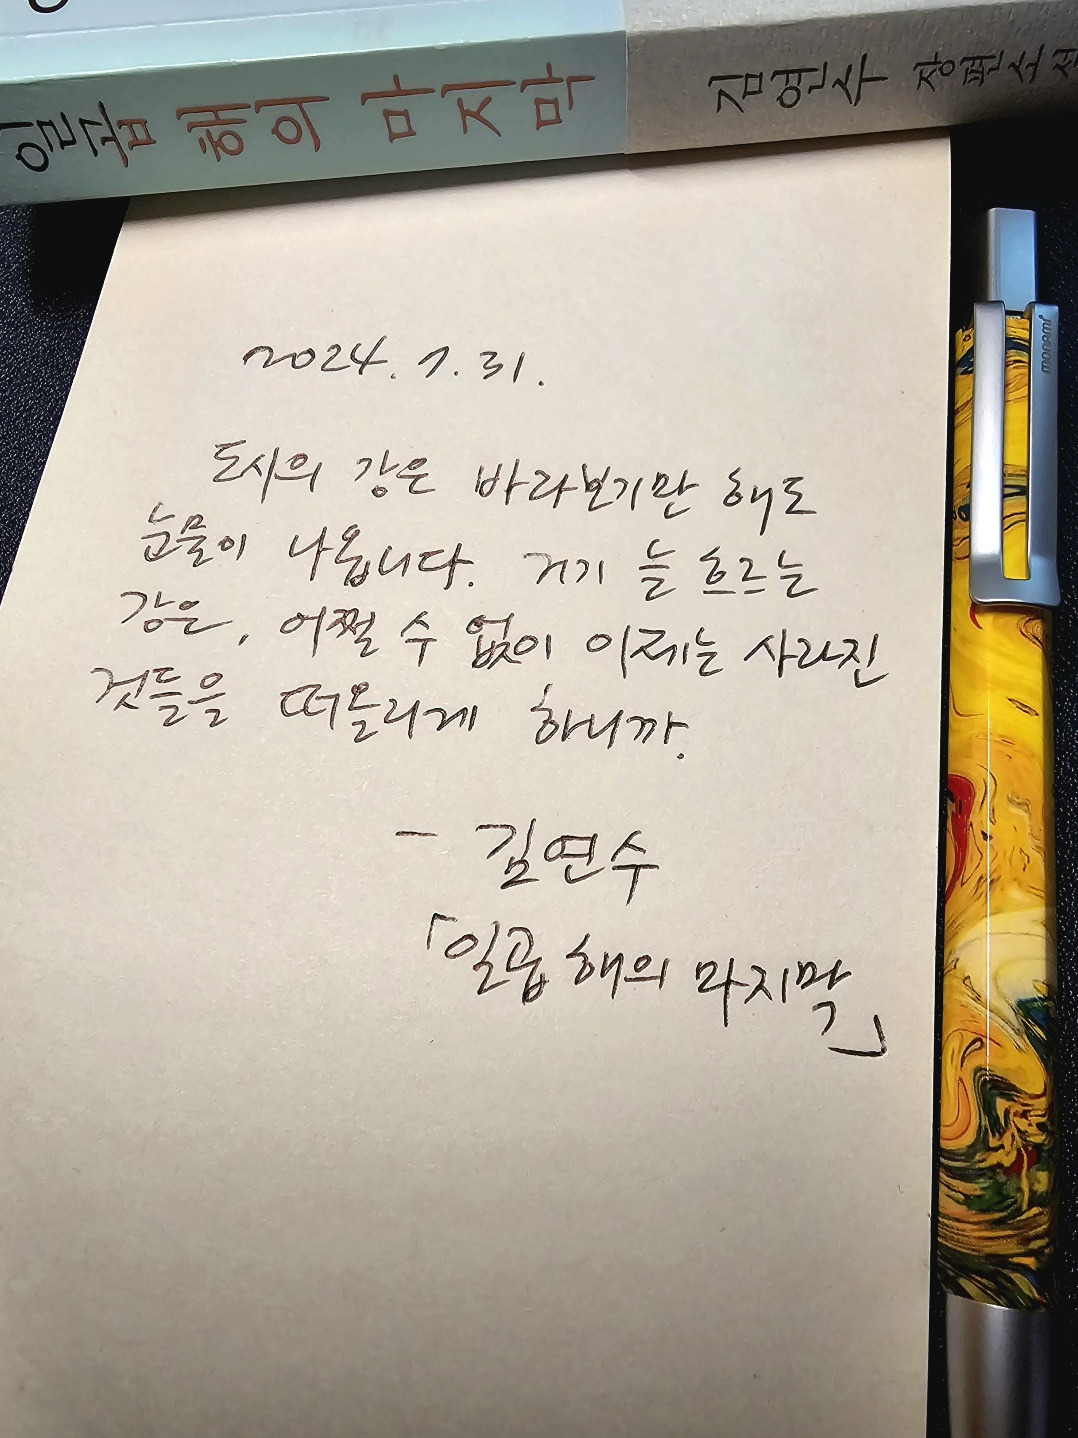 일곱 해의 마지막
김연수 장편소설
monami
2024. 7. 31.
도시의 강은 바라보기만 해도
눈물이 나옵니다. 거기 늘 흐르는
강은, 어쩔 수 없이 이제는 사라진
것들을 떠올리게 하니까.
- 김연수
「일곱 해의 마지막」